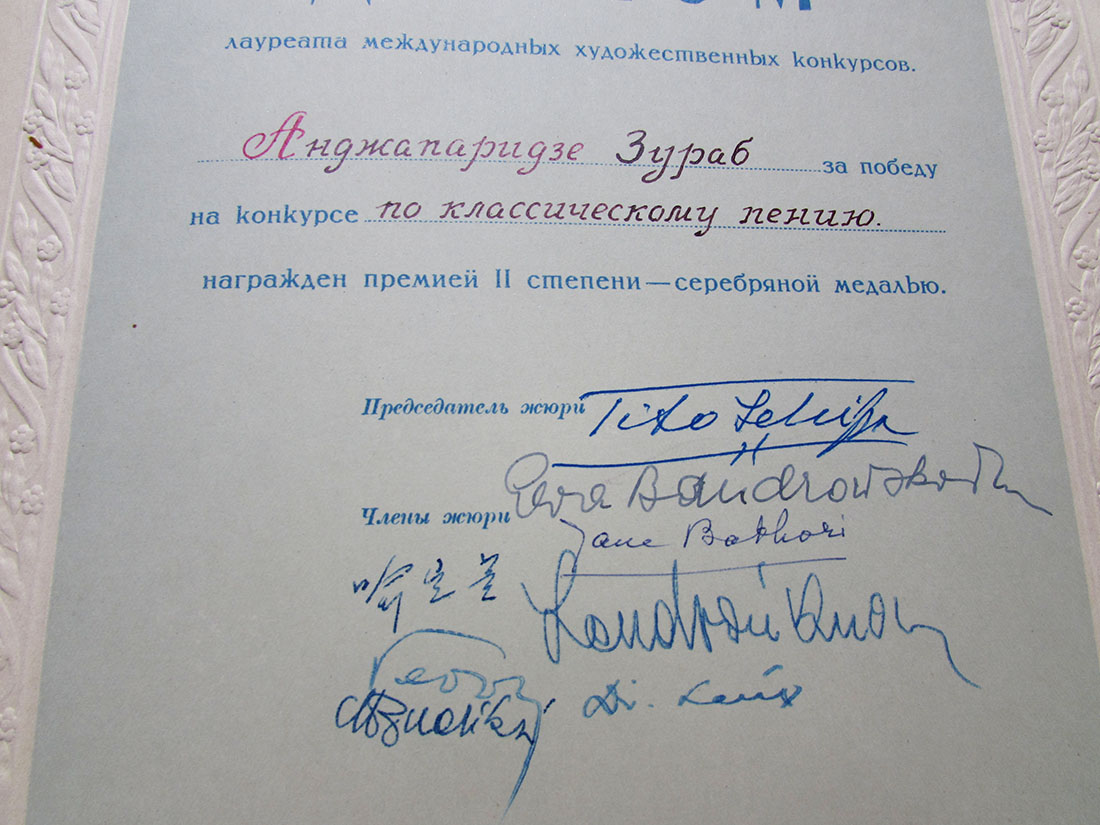 лауреата международных художественных конкурсов.
Анджапаридзе Зураб за победу
на конкурсе по классическому пению.
награжден премией II степени — серебряной медалью.
Председатель жюри Tito Schipa
Члены жюри Ewa Bandrowska
Jane Bathori